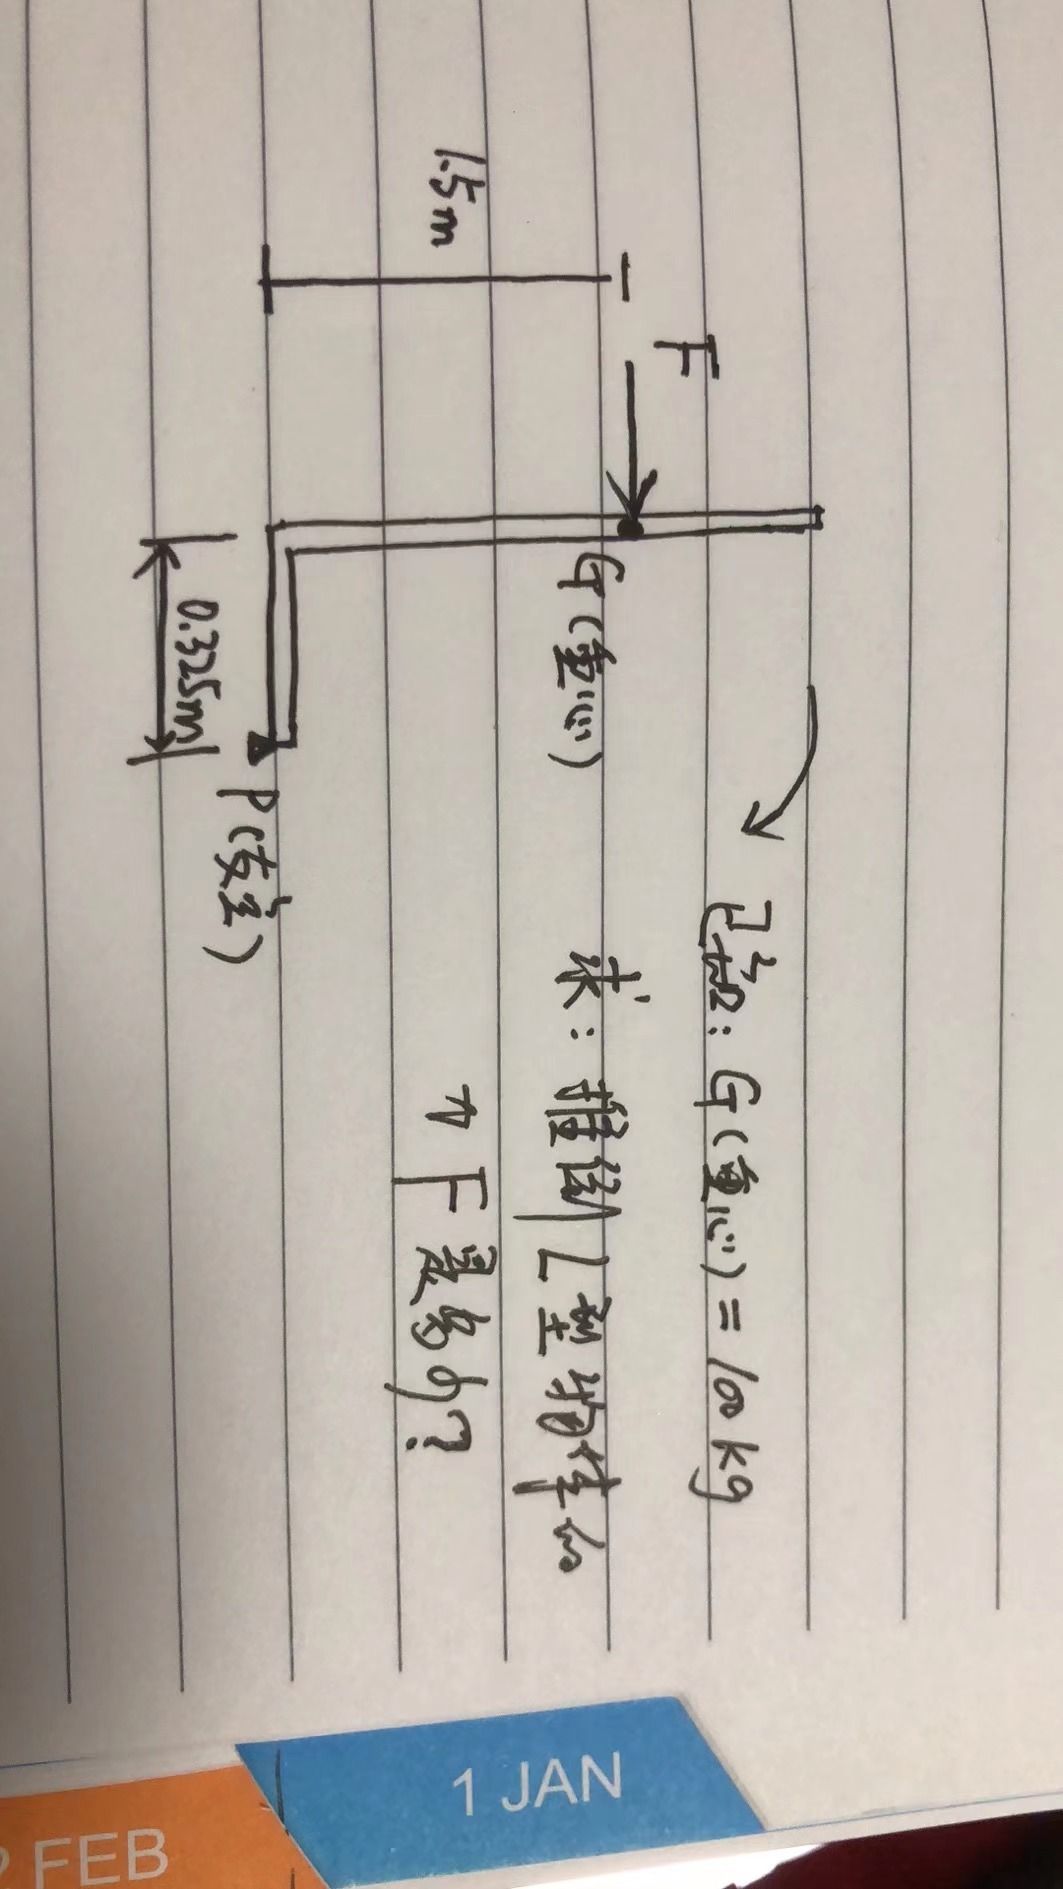 1.5m
F
G(重心)
0.325m
P(支点)
已知: G(重心) = 100 kg
求: 推倒L型物体的
力F是多少?
1 JAN
2 FEB